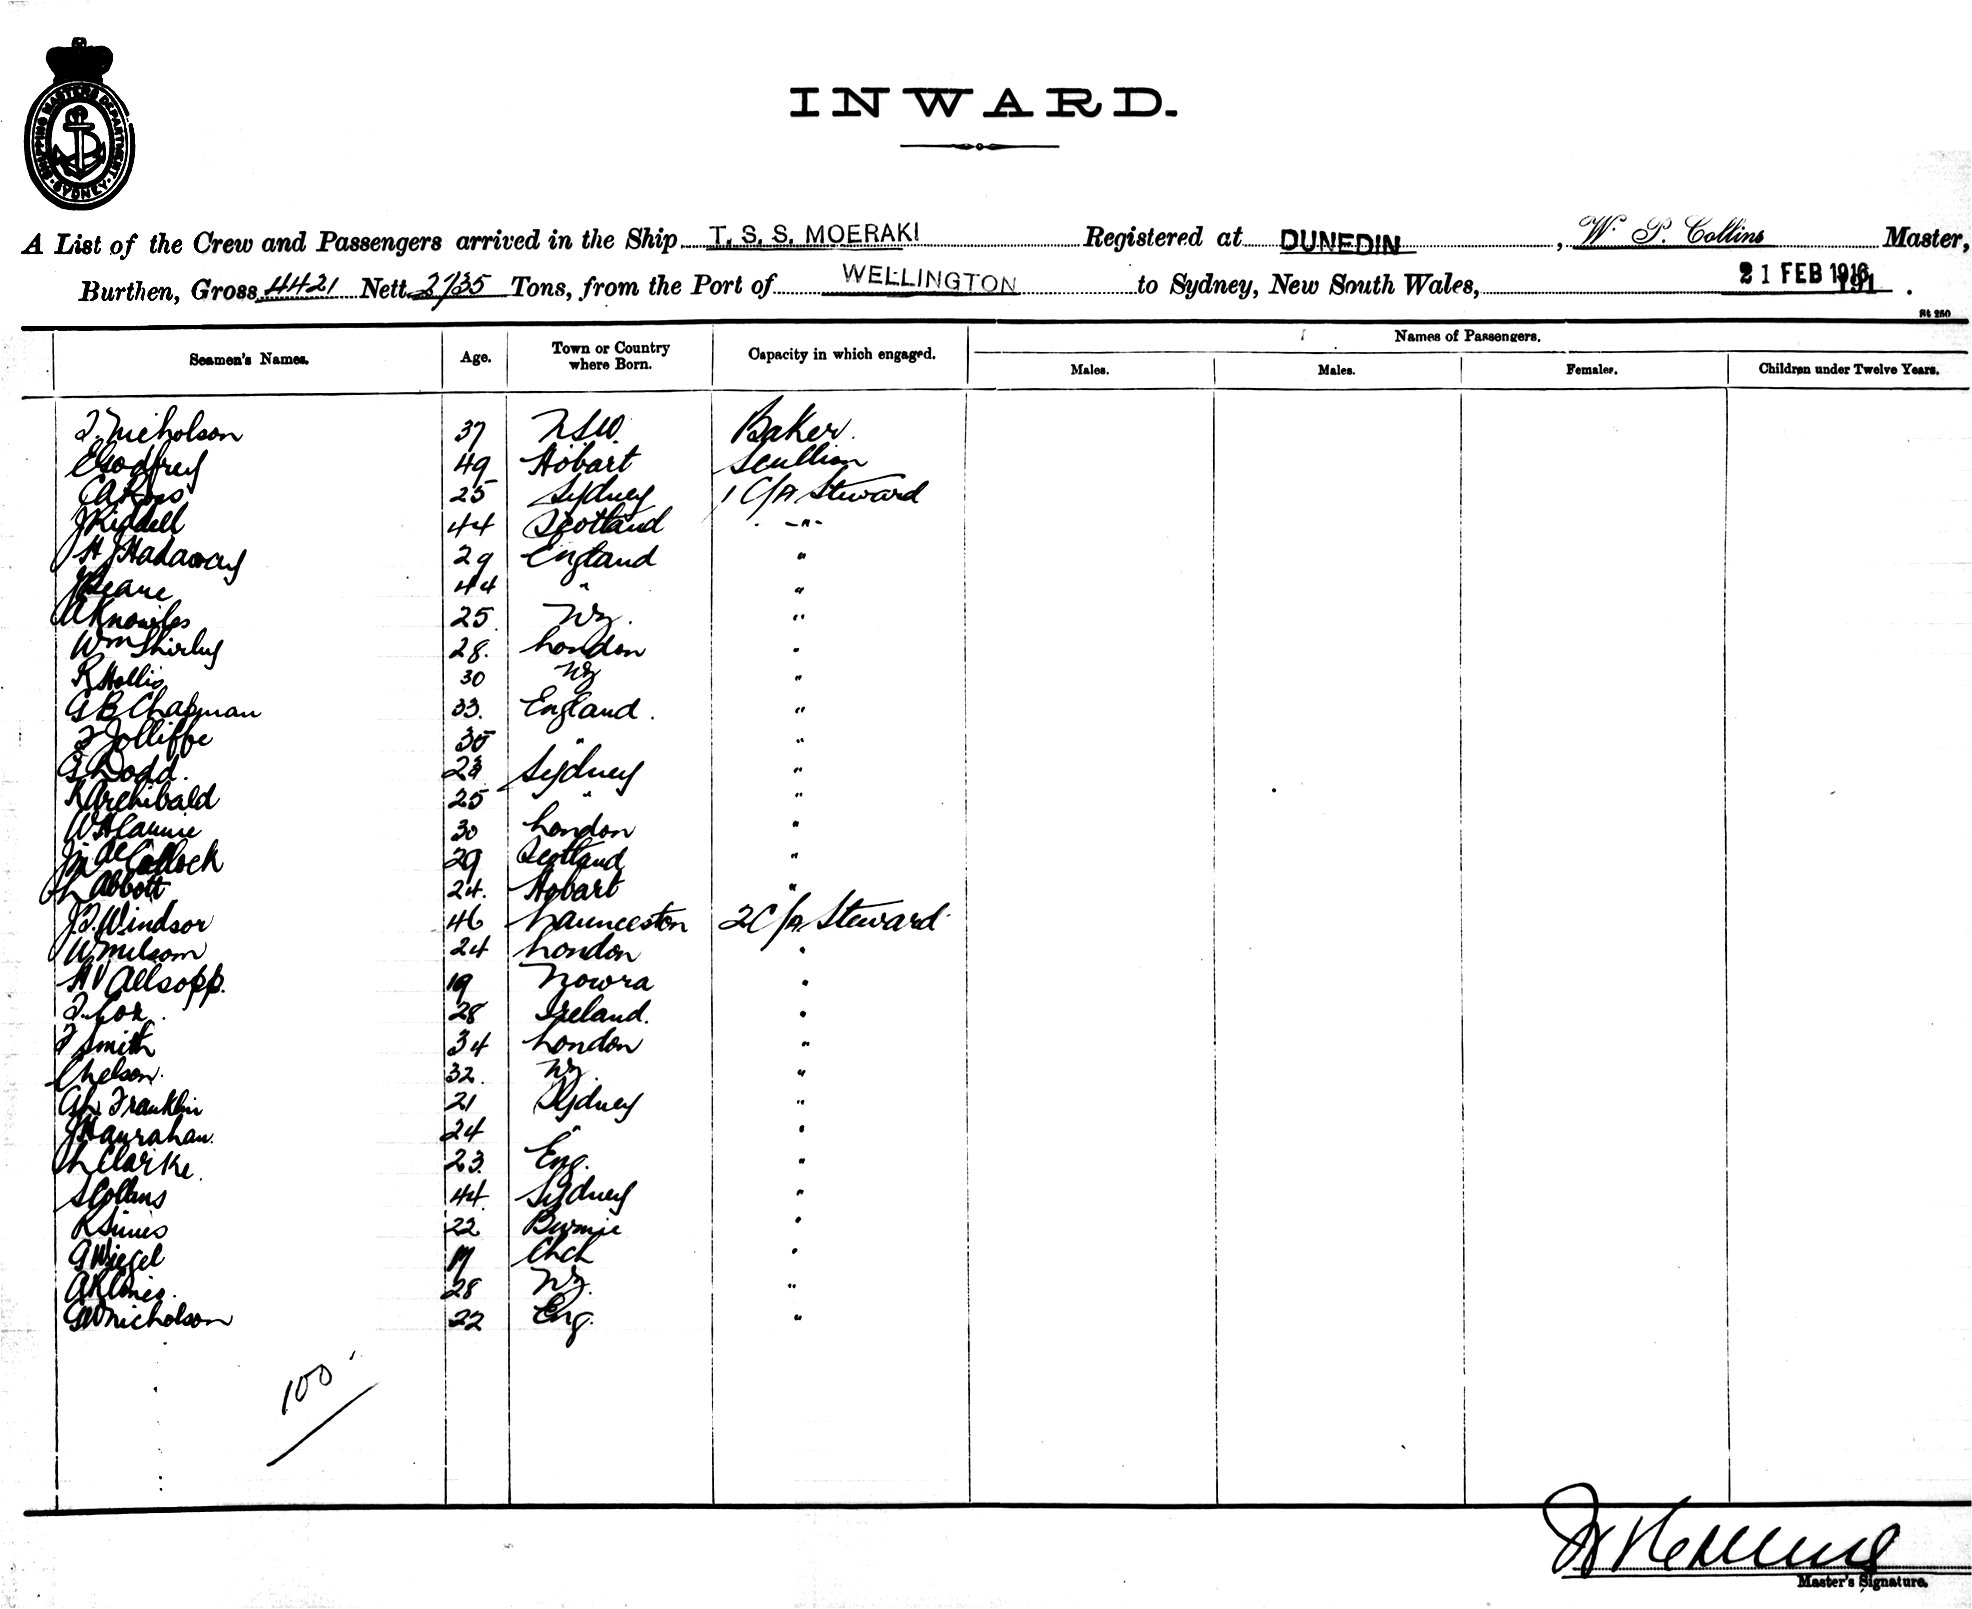 SHIPPING MASTERS DEPARTMENT SYDNEY
INWARD.
A List of the Crew and Passengers arrived in the Ship T. S. S. MOERAKI Registered at DUNEDIN, W. P. Collins Master,
Burthen, Gross 4421 Nett 2735 Tons, from the Port of WELLINGTON to Sydney, New South Wales, 21 FEB 1916 191 .
St 250
Names of Passengers.
Seamen's Names. Age. Town or Country where Born. Capacity in which engaged. Males. Males. Females. Children under Twelve Years.
T. Nicholson 37 NSW. Baker.
E Godfrey 49 Hobart Scullion
CA Ross 25 Sydney 1 C/A Steward
J Riddell 44 Scotland -"-
H J Hadaway 29 England "
J Deane 44 " "
A Knowles 25 NZ. "
Wm Shirley 28. London "
R Hollis 30 NZ "
G B Chapman 33. England. "
T Jolliffe 35 " "
G Dodd. 23 Sydney "
R Archibald 25 " "
W H 30 London "
J Mc 29 Scotland "
L Abbott 24. Hobart "
J. T. Windsor 46 Launceston 2 C/A Steward
W Milsom 24 London "
H V Allsopp. 19 Nowra "
T. Cox. 28 Ireland. "
T Smith 34 London "
C Nelson. 32. NZ. "
G L Franklin 21 Sydney "
J Hanrahan. 24 " "
L Clarke. 23. Eng. "
S Collins 44. Sydney "
R Simes 22 Burnie "
G Wiegel 17 Chch "
A R 28 NZ. "
G W Nicholson 22 Eng. "
100
W P Collins
Master's Signature.